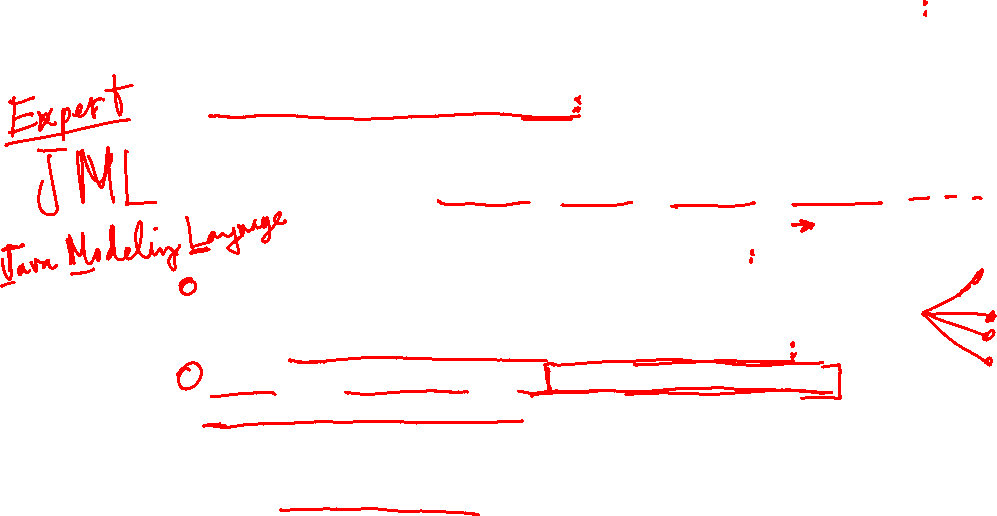 Expert
JML
Java Modeling Language